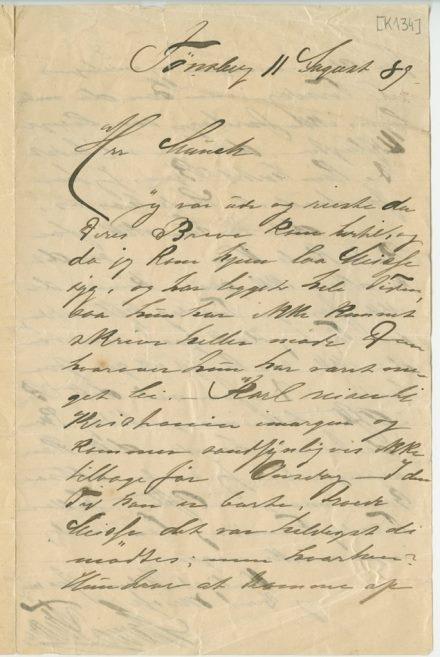 [K134]
Tönsberg 11 August 89
Herr Munch
Jeg var ude og reiste da
Deres Breve kom hertil, og
da jeg kom hjem laa
syg, og har ligget hele Tiden,
saa hun har ikke kunnet
skrive heller møde Dem
hvorover hun har været me-
get lei. — Karl reiser til
Kristiania imorgen og
kommer sandsynligvis ikke
tilbage før Onsdag — I den
Tid han er borte, troede
det var heldigst de
mødtes; men hvorhen?
Hun at komme op